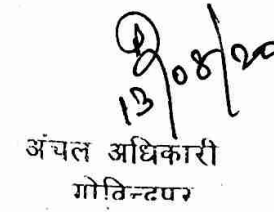 13/08/20
अंचल अधिकारी
गोविन्दपुर